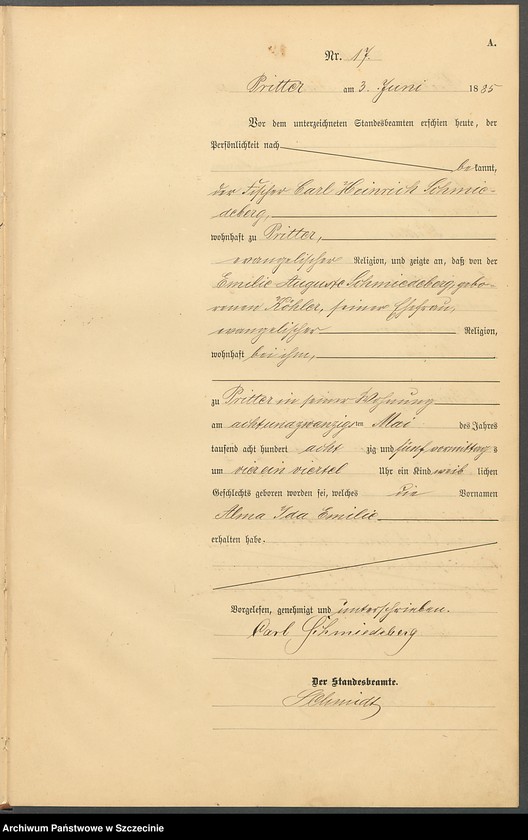 A.
Nr. 17.
Pritter am 3. Juni 1885
Vor dem unterzeichneten Standesbeamten erschien heute, der
Persönlichkeit nach
bekannt,
der Fischer Carl Heinrich Schmie-
deberg,
wohnhaft zu Pritter,
evangelischer Religion, und zeigte an, daß von der
Emilie Auguste Schmiedeberg, gebo-
renen Köhler, seiner Ehefrau,
evangelischer Religion,
wohnhaft bei ihm,
zu Pritter in seiner Wohnung
am achtundzwanzigsten Mai des Jahres
tausend acht hundert achtzig und fünf vormittags
um vierein viertel Uhr ein Kind weiblichen
Geschlechts geboren worden sei, welches die Vornamen
Alma Ida Emilie
erhalten habe.
Vorgelesen, genehmigt und unterschrieben.
Carl Schmiedeberg
Der Standesbeamte.
Schmidt
Archiwum Państwowe w Szczecinie